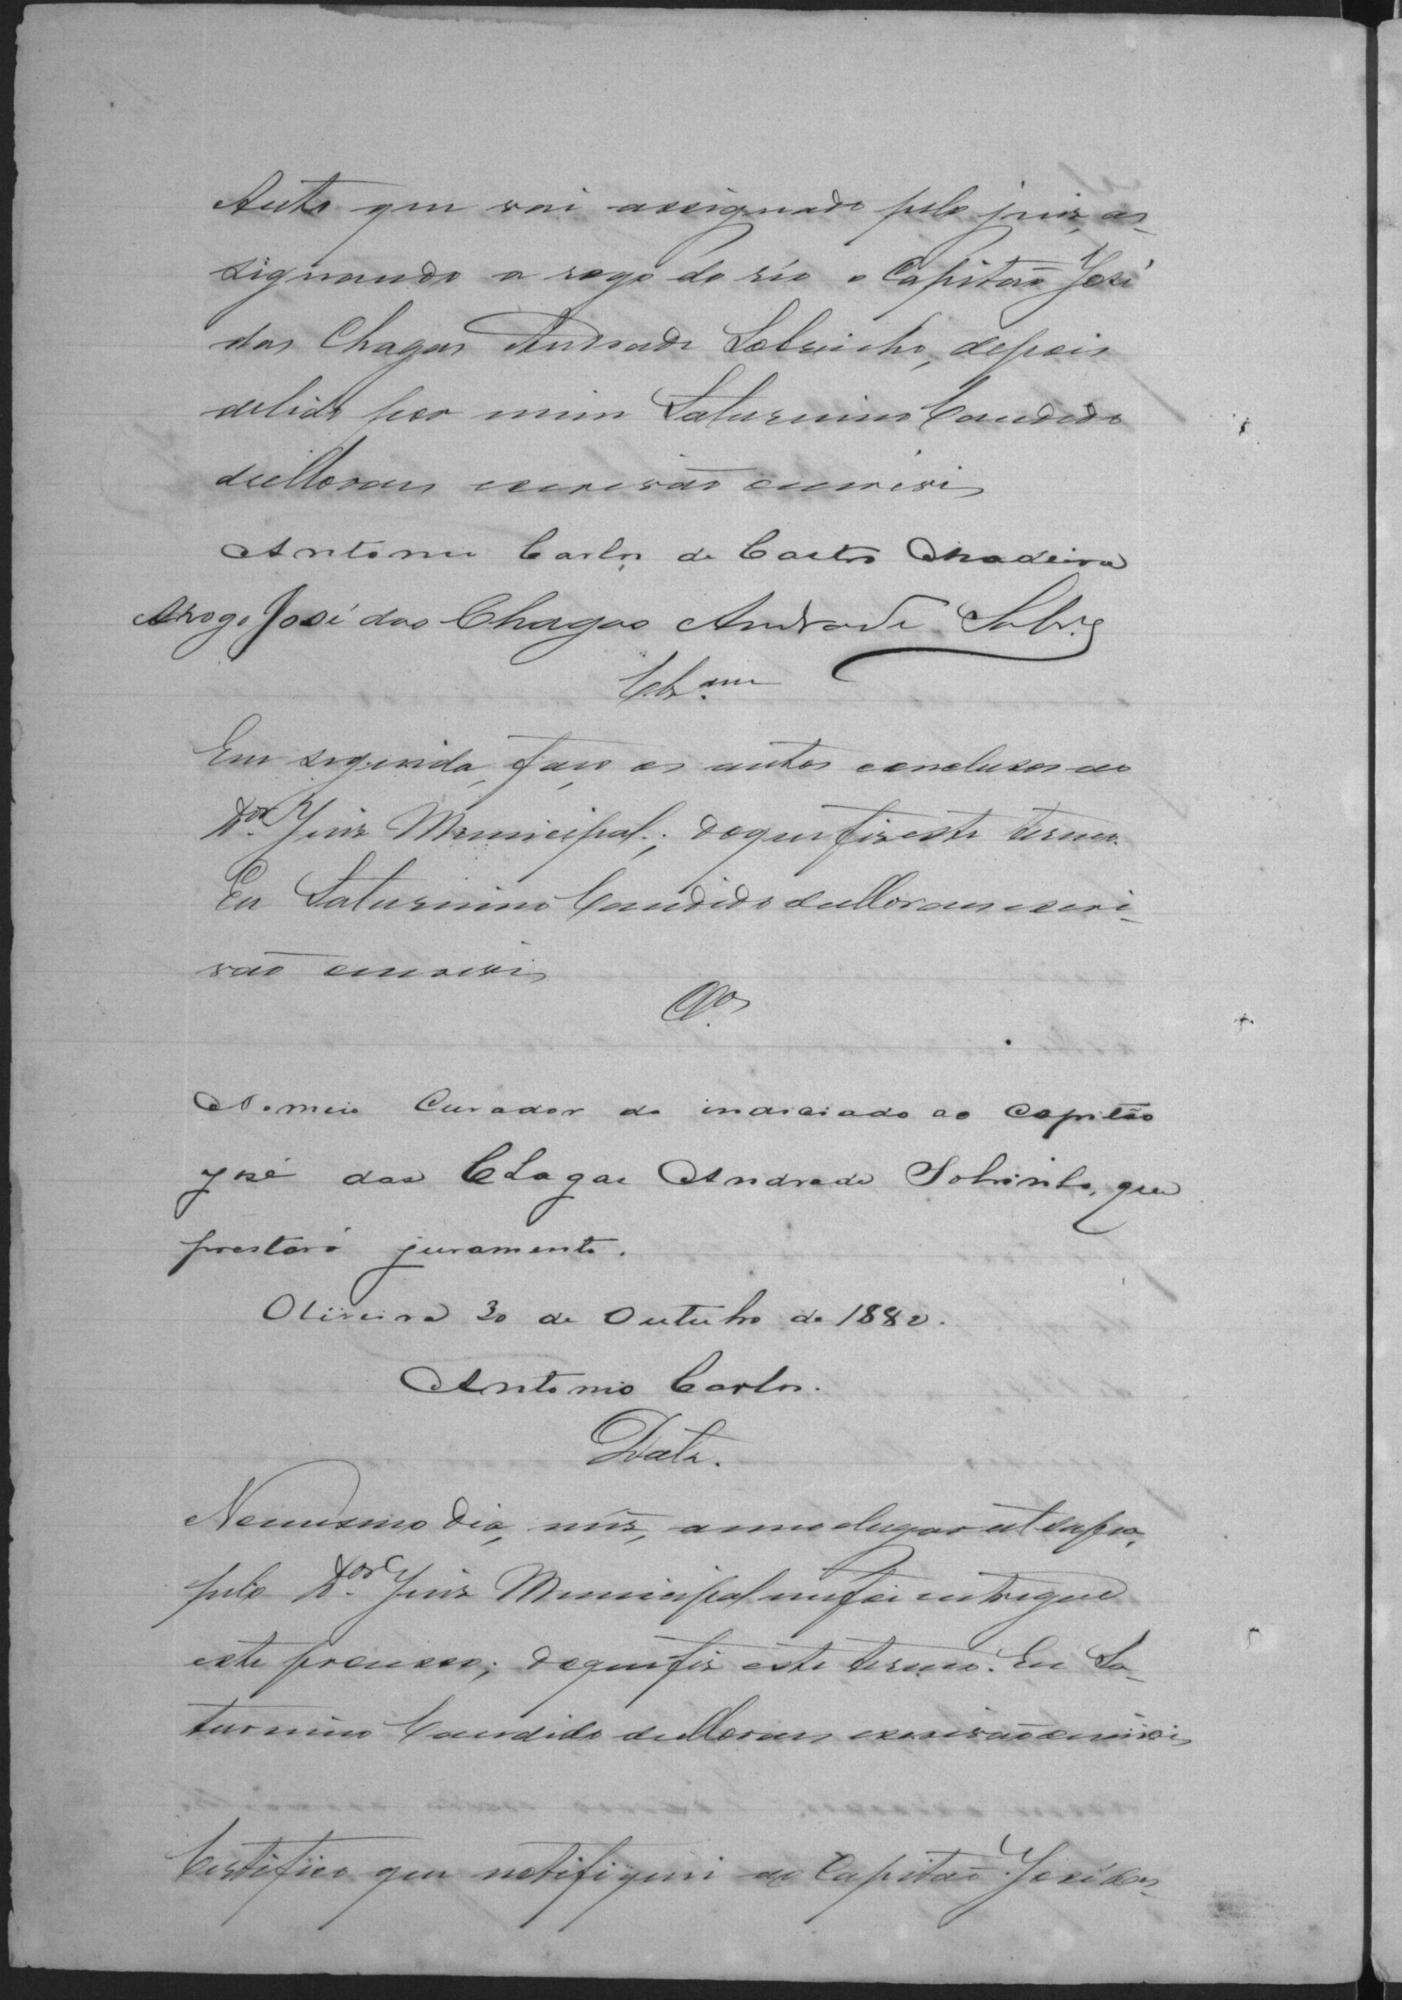 Auto que vai assignado pelo juiz, as-
signando a rogo do réo o Capitão José
das Chagas Andrade Sobrinho, depois
de lido por mim Saturnino Candido
de Moraes escrivão escrevi
Antonio Carlos de Castro Madeira
Arogo José das Chagas Andrade Sobr.o
Em seguida, faço os autos conclusos ao
D.or Juiz Municipal; do que fiz este termo.
Eu Saturnino Candido de Moraes escri-
vão escrevi
Nomeio Curador do indiciado ao Capitão
José das Chagas Andrade Sobrinho, que
prestará juramento.
Oliveira 30 de Outubro de 1882.
Antonio Carlos.
Data.
No mesmo dia, mez, anno e lugar ut supra,
pelo D.or Juiz Municipal me foi entregue
este processo; do que fiz este termo. Eu Sa-
turnino Candido de Moraes escrivão escrevi
Certifico que notifiquei ao Capitão José das